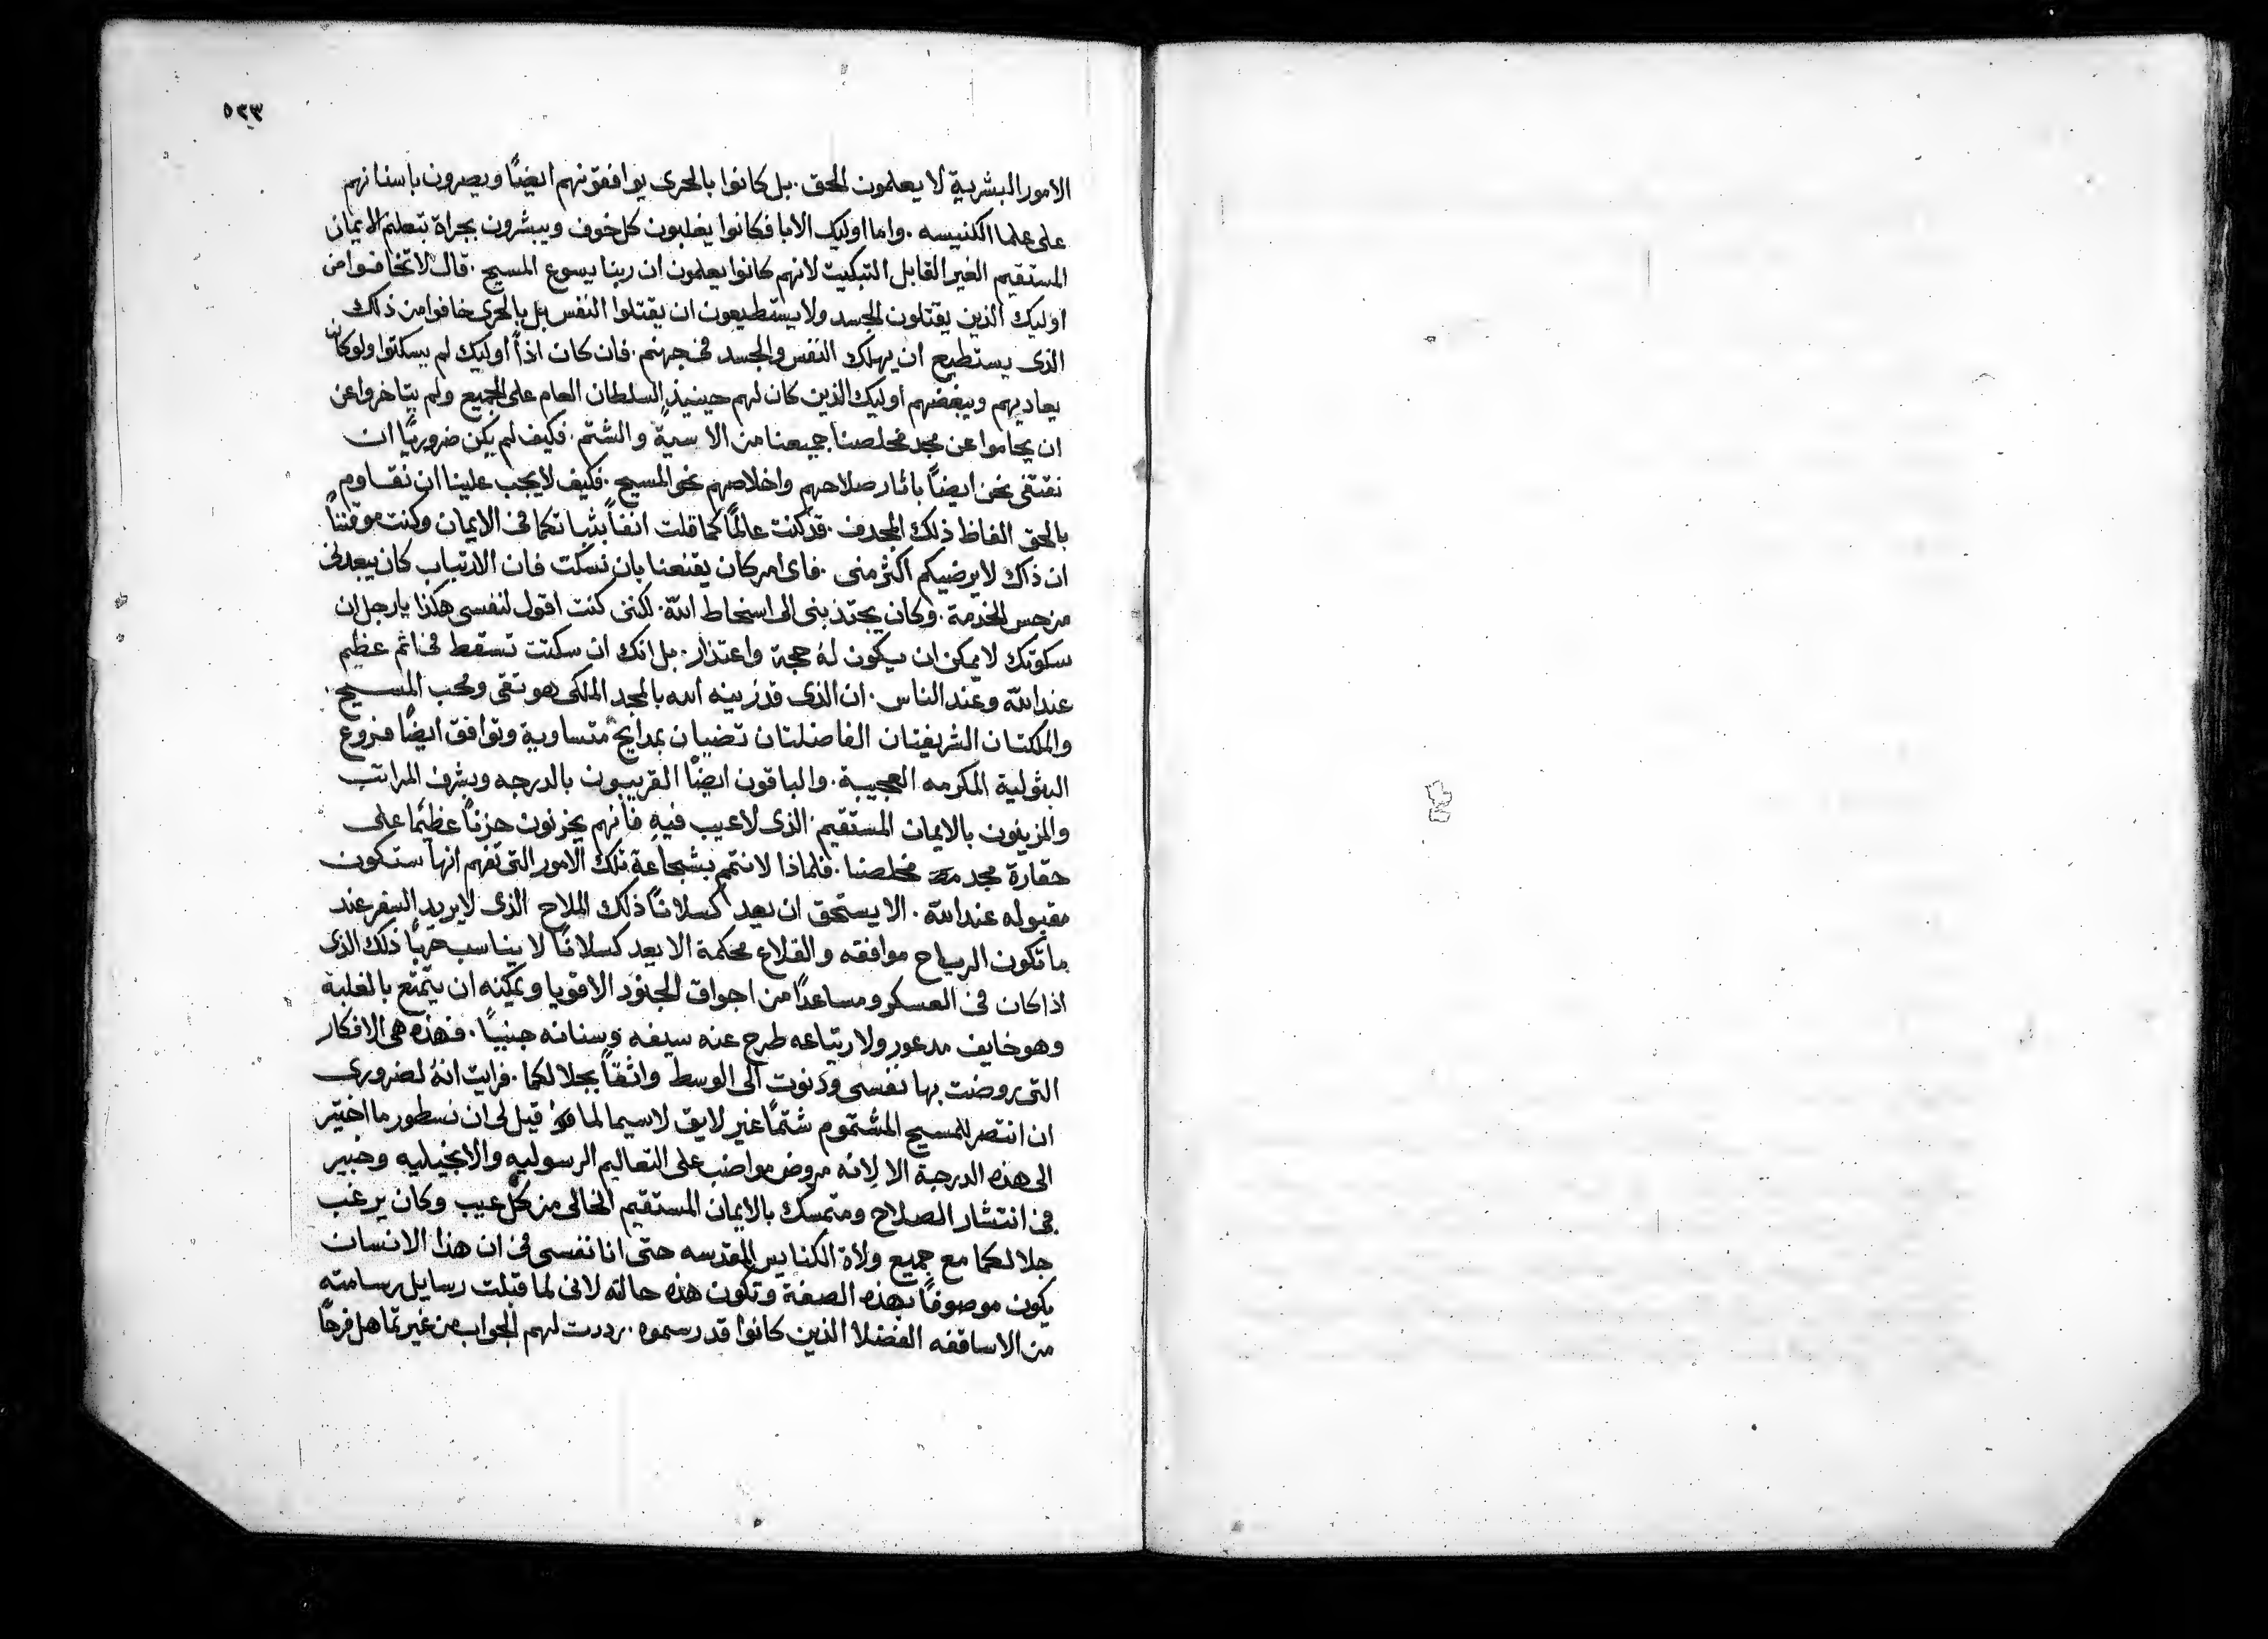 ٥٢٣
الامور البشرية لا يعلمون الحق . بل كانوا بالحرى يوافقونهم ايضًا ويصرون باسنانهم
على علما الكنيسه . واما اوليك الابا فكانوا يغلبون كل خوف ويبشرون بجراة بتعليم الايمان
المستقيم الغير القابل التبكيت لانهم كانوا يعلمون ان ربنا يسوع المسيح . قال لا تخافوا من
اوليك الذين يقتلون الجسد ولا يستطيعون ان يقتلوا النفس بل بالحرى خافوا من ذلك
الذى يستطيع ان يهلك النفس والجسد فى جهنم . فان كان اذاً اوليك لم يسكتوا ولو كان
يعاديهم ويبغضهم اوليك الذين كان لهم حينيذٍ السلطان العام على الجميع ولم يتاخروا عن
ان يحاموا عن مجد مخلصنا جميعنا من الاسية والشتم . فكيف لم يكن ضروريًا ان
نقتفى نحن ايضاً باثار صلاحهم واخلاصهم نحو المسيح . فكيف لا يجب علينا ان نقاوم
بالحق الفاظ ذلك المجدف . قد كنت عالمًا كما قلت انفاً بثباتكما فى الايمان وكنت موقنناً
ان ذاك لا يرضيكم اكثر منى . فاى امر كان يقنعنا بان نسكت فان الارتياب كان يبعدنى
من حس الخدمة . وكان يجتذبنى الى اسخاط الله . لكننى كنت اقول لنفسى هكذا يا رجل ان
سكوتك لا يمكن ان يكون لهُ حجة واعتذار . بل انك ان سكتت تسقط فى اثم عظيم
عند الله وعند الناس . ان الذى قد زينه الله بالمجد الملكى هو تقى ومحب المسيح .
والملكتان الشريفتان الفاضلتان تضيان بمدايح متساوية وتوافق ايضًا فروع
البثولية المكرمه العجيبة . والباقون ايضًا القريبون بالدرجه وبشرف المراتب
والمزينون بالايمان المستقيم الذى لا عيب فيهِ فانهم يحزنون حزناً عظيمًا على
حقارة مجد مخلصنا . فلماذا لا نتمم بشجاعة تلك الامور التى تفهم انها ستكون
مقبوله عند الله . الا يستحق ان يعد كسلاناً ذلك الملاح الذى لا يريد السفر عند
ما تكون الرياح موافقه والقلاع محكمة الا يعد كسلانًا لا يناسب حربًا ذلك الذى
اذا كان فى العسكر ومساعدًا من اجواق الجنود الاقويا ويمكنه ان يتمتع بالغلبة
وهو خايف مدعور ولارتياعه طرح عنه سيفه وسنانه جنبيًا . فهذه هى الافكار
التى روضت بها نفسى ودنوت الى الوسط واثقاً بجلالكما . فرايت انهُ لضرورى
ان انتصر للمسيح المشتموم شتمًا غير لايق لا سيما لما قيل لى ان نسطور ما اختير
الى هذه الدرجة الا لانه مروض مواضب على التعاليم الرسوليه والانجيليه وخبير
فى انتشار الصلاح ومتمسك بالايمان المستقيم الخالى من كل عيب وكان يرغب
جلالكما مع جميع ولاة الكنايس المقدسه حتى انا نفسى فى ان هذا الانسان
يكون موصوفاً بهذه الصفة وتكون هذه حالته لانى لما قبلت رسايل رسامته
من الاساقفه الفضلا الذين كانوا قد رسموه . رددت لهم الجواب من غير تماهل فرحًا